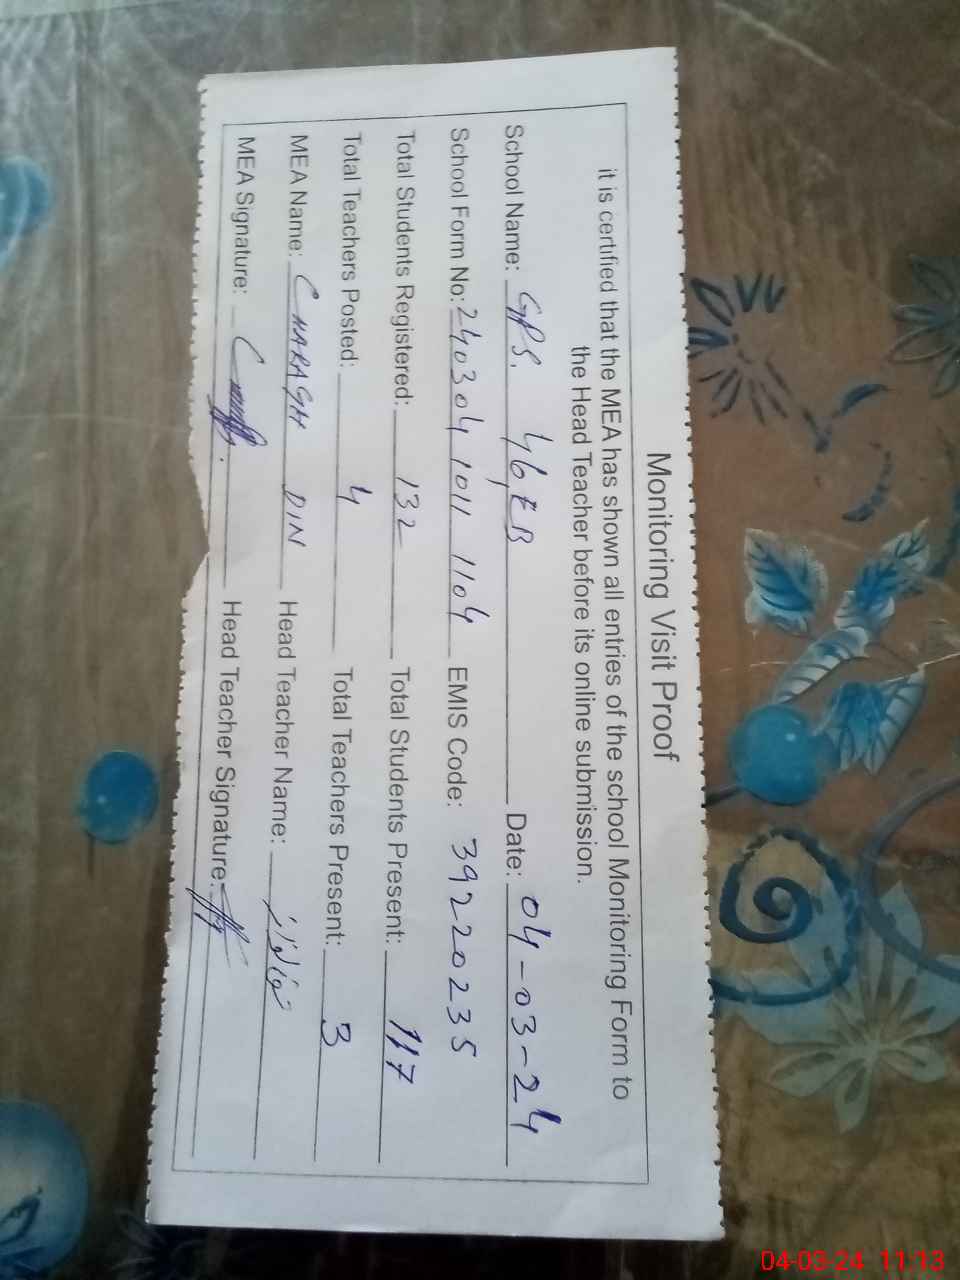 Monitoring Visit Proof
it is certified that the MEA has shown all entries of the school Monitoring Form to
the Head Teacher before its online submission.
School Name: GPS. 46, EB Date: 04-03-24
School Form No: 240304 1011 1104 EMIS Code: 39220235
Total Students Registered: 132 Total Students Present: 117
Total Teachers Posted: 4 Total Teachers Present: 3
MEA Name: CHARAGH DIN Head Teacher Name:
MEA Signature: Head Teacher Signature:
04-03-24 11:13